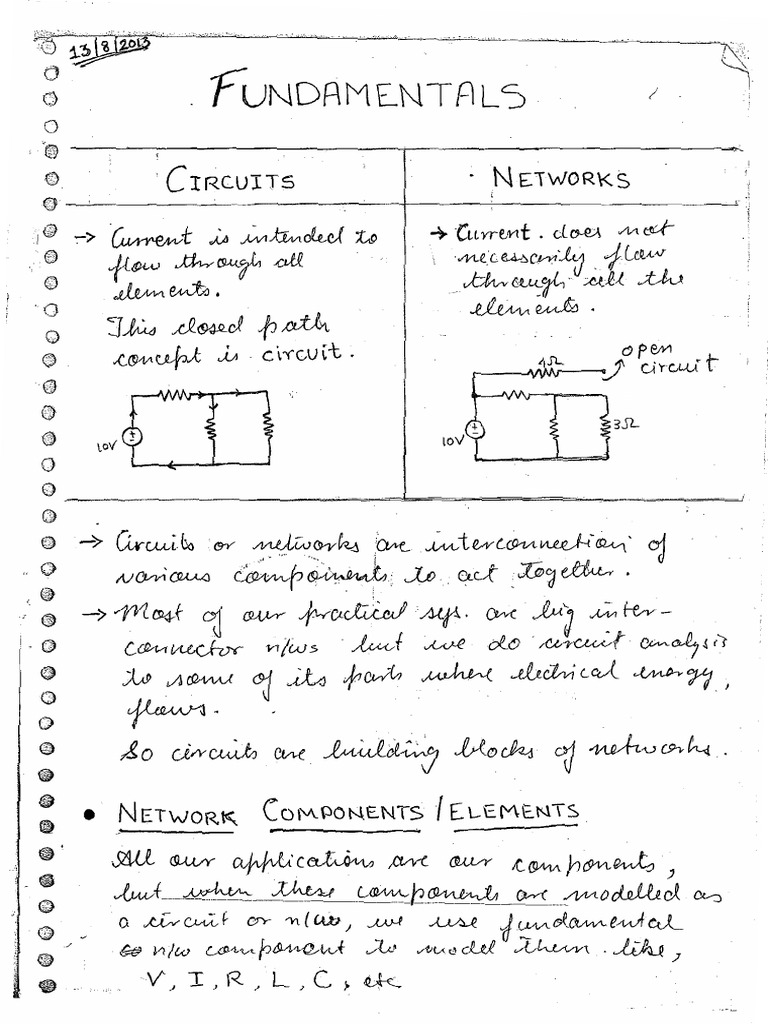 13/8/2013
FUNDAMENTALS
CIRCUITS
→ Current is intended to
flow through all
elements.
This closed path
concept is circuit.
10V
NETWORKS
→ Current does not
necessarily flow
through all the
elements.
4Ω
open
circuit
10V
3Ω
→ Circuits or networks are interconnection of
various components to act together.
→ Most of our practical sys. are big inter-
connector n/ws but we do circuit analysis
to some of its parts where electrical energy
flows.
So circuits are building blocks of networks.
• NETWORK COMPONENTS / ELEMENTS
All our applications are our components,
but when these components are modelled as
a circuit or n/w, we use fundamental
n/w component to model them. like,
V, I, R, L, C, etc